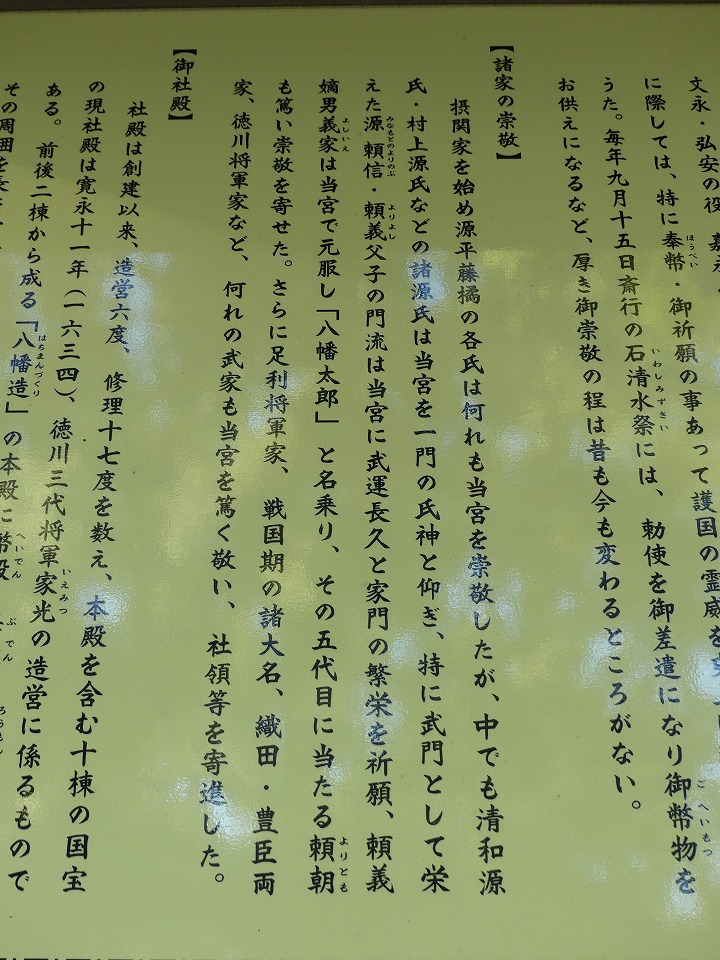 文永・弘安の役
に際しては、特に奉幣・御祈願の事あって護国の霊威を
うた。毎年九月十五日斎行の石清水祭には、勅使を御差遣になり御幣物を
お供えになるなど、厚き御崇敬の程は昔も今も変わるところがない。
【諸家の崇敬】
摂関家を始め源平藤橘の各氏は何れも当宮を崇敬したが、中でも清和源
氏・村上源氏などの諸源氏は当宮を一門の氏神と仰ぎ、特に武門として栄
えた源頼信・頼義父子の門流は当宮に武運長久と家門の繁栄を祈願、頼義
嫡男義家は当宮で元服し「八幡太郎」と名乗り、その五代目に当たる頼朝
も篤い崇敬を寄せた。さらに足利将軍家、戦国期の諸大名、織田・豊臣両
家、徳川将軍家など、何れの武家も当宮を篤く敬い、社領等を寄進した。
【御社殿】
社殿は創建以来、造営六度、修理十七度を数え、本殿を含む十棟の国宝
の現社殿は寛永十一年（一六三四）、徳川三代将軍家光の造営に係るもので
ある。前後二棟から成る「八幡造」の本殿に幣殿
その周囲を